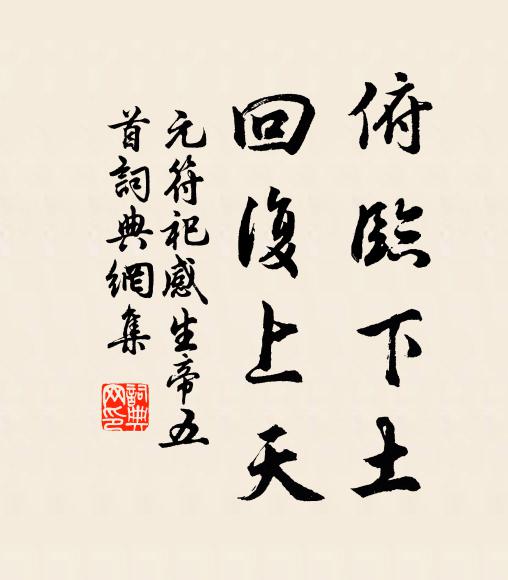 俯臨下土
回復上天
元符祀感生帝五
首詞典網集
詞典
网印